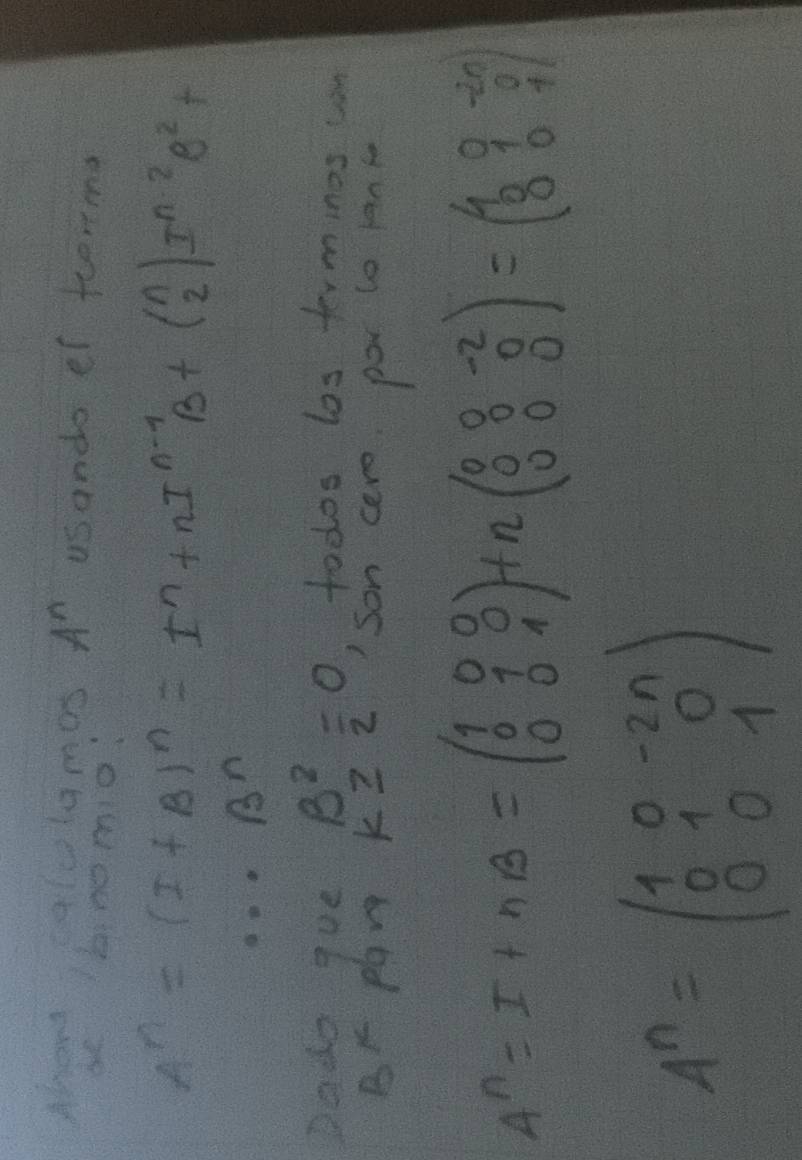 Ahora calculamos Aⁿ usando el teorema
de binomio:
Aⁿ = (I + B)ⁿ = Iⁿ + nIⁿ⁻¹B + (n 2)Iⁿ⁻²B² +
... Bⁿ
Dado que B² = 0, todos los terminos con
Bᴷ para K ≥ 2, son cero. por lo tanto
Aⁿ = I + nB = (1 0 0 / 0 1 0 / 0 0 1) + n (0 0 -2 / 0 0 0 / 0 0 0) = (1 0 -2n / 0 1 0 / 0 0 1)
Aⁿ = (1 0 -2n / 0 1 0 / 0 0 1)